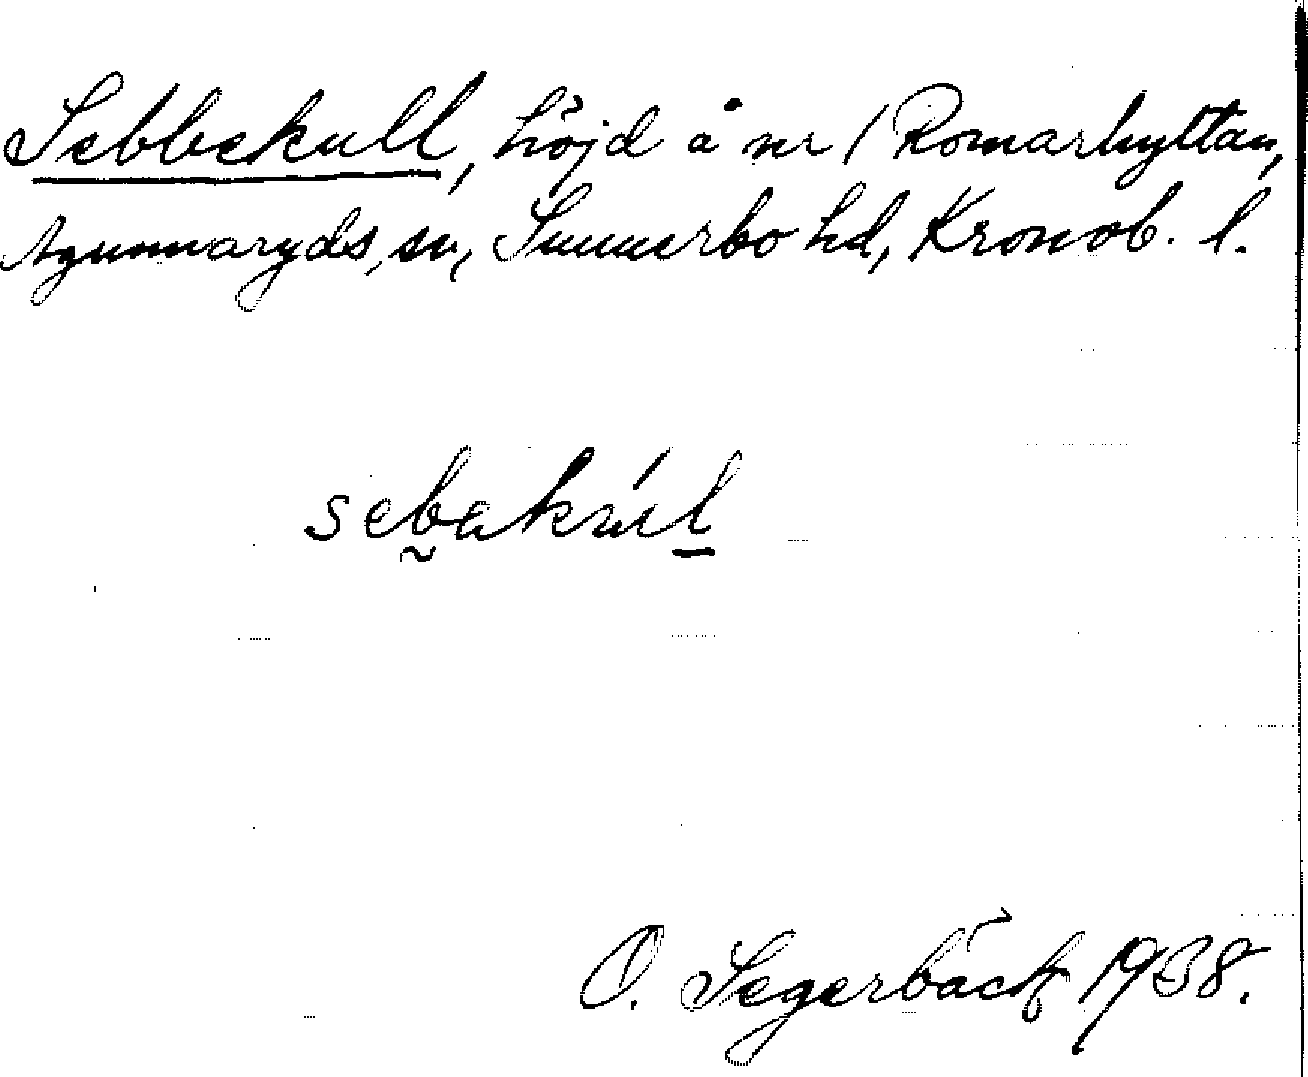 Sebbekull, höjd å nr 1 Romarhyltan,
Agunnaryds, sn, Sunnerbo hd, Kronob. l.
sebakúl
O. Segerbäck 1938.